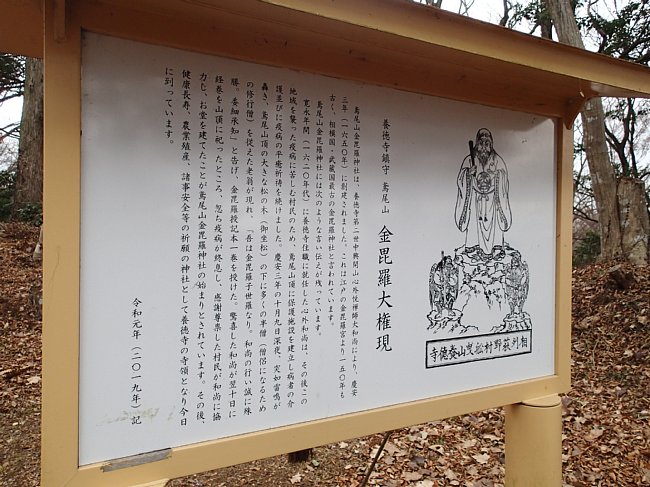 養徳寺鎮守 鳶尾山 金毘羅大権現
鳶尾山金毘羅神社は、養徳寺第二世中興開山心外悦禅師大和尚により、慶安
三年（一六五〇年）に創建されました。これは江戸の金毘羅宮より一五〇年も
古く、相模国・武蔵国最古の金毘羅神社と言われています。
鳶尾山金毘羅神社には次のような言い伝えが残っています。
寛永年間（一六二〇年代）に養徳寺住職に就任した心外和尚は、その後この
地域を襲った疫病に苦しむ村民のため、鳶尾山頂に保護施設を建立し病者の介
護並びに疫病の平癒祈祷を続けました。慶安三年の十月九日深夜、突如雷鳴が
轟き、鳶尾山頂の大きな松の木（御坐松）の下に多くの半僧（僧侶になるため
の修行僧）を従えた老翁が現れ、「吾は金毘羅子世羅なり。和尚の行い誠に殊
勝。委細承知」と告げ、金毘羅授記本一巻を授けた。驚喜した和尚が翌十日に
経巻を山頂に祀ったところ、忽ち疫病が終息し、感謝尊崇した村民が和尚に協
力し、お堂を建てたことが鳶尾山金毘羅神社の始まりとされています。その後、
健康長寿、農業殖産、諸事安全等の祈願の神社として養徳寺の寺領となり今日
に到っています。
令和元年（二〇一九年）記
相刕荻野村松曳山養徳寺